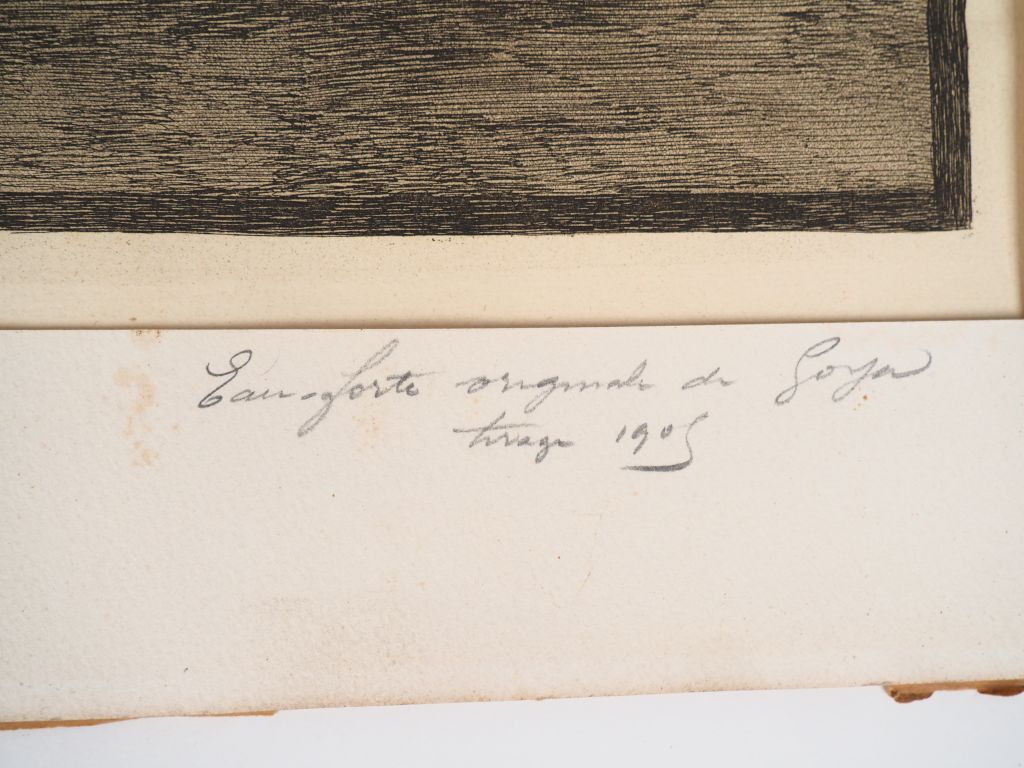 Eau-forte originale de Goya
tirage 1905